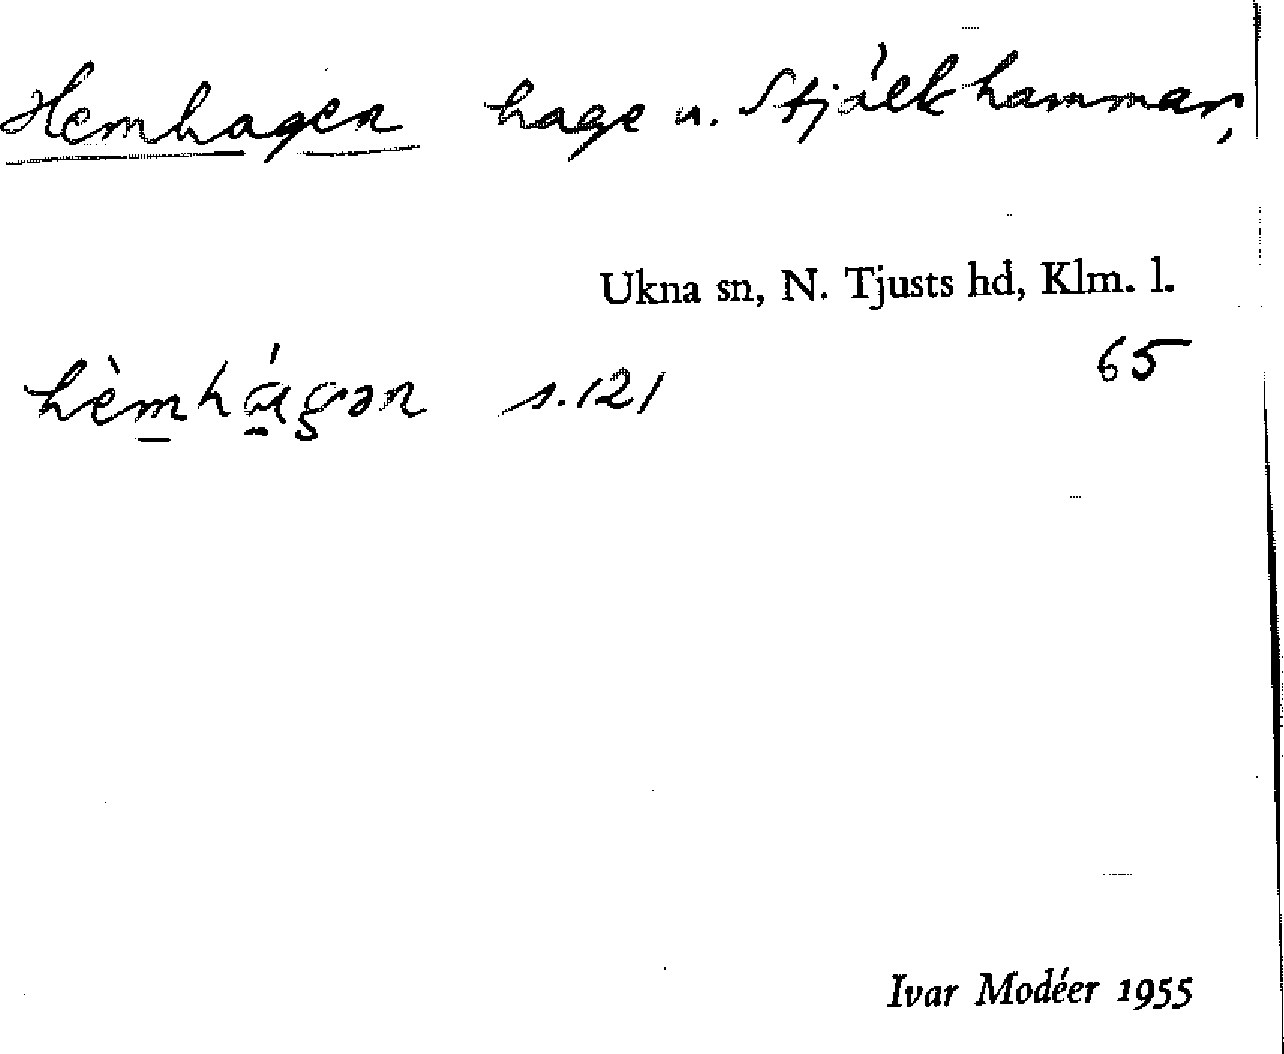 Hemhagen hage u. Stjälkhammar,
Ukna sn, N. Tjusts hd, Klm. l.
65
hèmhágən s. 121
Ivar Modéer 1955